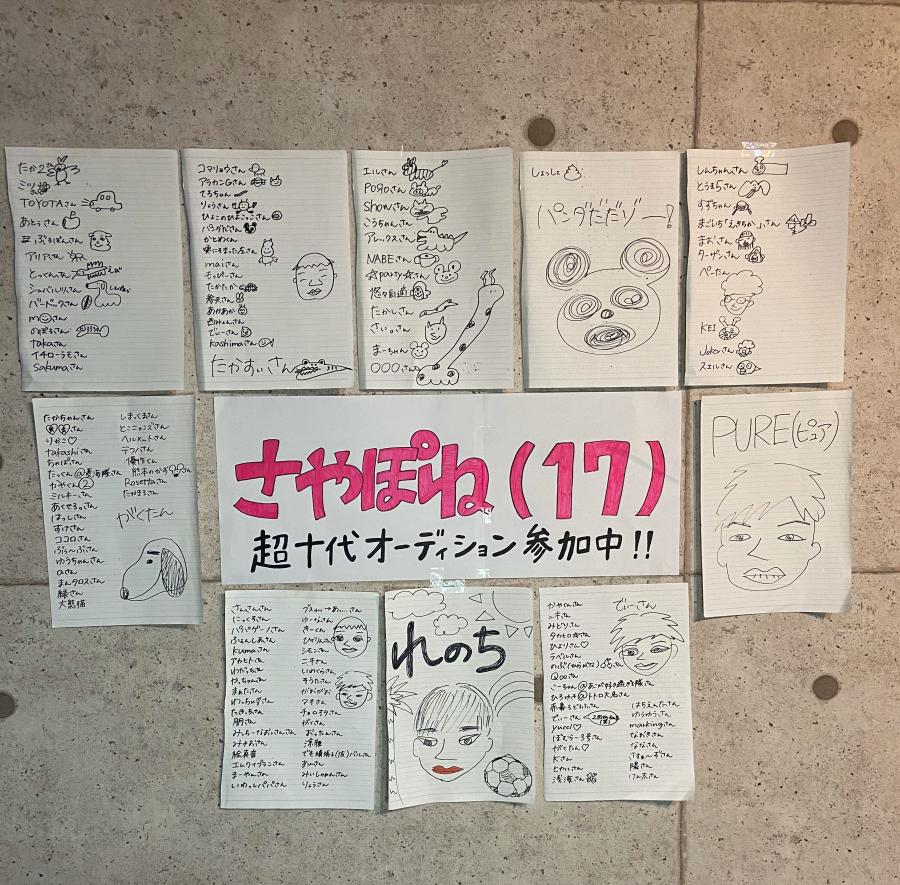 たか2
ミツ
TOYOTAさん
あとうさん
ぷるぽんさん
アリアさん
とっくんさん
シュバルリさん
バードックさん
mさん
のぼるさん
takaさん
イチローラモさん
sakumaさん
コマリョウさん
アラカンGさん
てるちゃん
りょうさん
ひよこのぴよこっこさん
パラガガさん
かとめくん
maiさん
もっぴーさん
たかたか
春夫さん
あかあか
でぃーさん
kashimaさん
たかすぃさん
エルさん
POЯOさん
Showさん
こうちゃんさん
アレックスさん
NABEさん
☆party☆さん
悠々自適
たかしさん
さいっさん
まーちゃん
〇〇〇さん
しょうしょ
パンダだゾー!
しんちゃんさん
とうま5さん
すずちゃん
まごいち「えきちか」さん
まおさん
ターザンさん
ぺーたん
KEI
Jokerさん
スエルさん
たかちゃんさん
りおこ♡
takashiさん
ちゃぱさん
かやくん②
ミルキーさん
あくせろっさん
はっしさん
すけさん
ココロさん
ぶぅ〜ぶさん
ゆうちゃんさん
aさん
まんタロスさん
緑さん
大熊猫
しまっくまさん
とこニャンズさん
ヘルメットさん
テクノさん
優作くん
熊本のかずさん
Rosettaさん
たかまろさん
がくたん
さやぽね(17)
超十代オーディション参加中!!
PURE(ピュア)
さんさんさん
にっくすさん
パパパゲーノさん
ふぉんしあさん
Kumaさん
アカヒトさん
わだっちさん
やっちゃんさん
まぁたさん
わっちゅ？さん
たきっちさん
朋さん
みっちーなおっさんさん
みきおさん
絵真音
エムタイプランさん
まーやんさん
いわっしパパさん
ゆーなさん
きーくん
ひでりんさん
シモンさん
ニキさん
いのくらさん
そうたさん
かおりがおさん
マオさん
チョロヲタさん
がくさん
おったんさん
涼雅
でも頑張る(仮)パパさん
あいさん
みぃしゃぁんさん
りょうさん
れのち
かやくんさん
ニキさん
みどりさん
タカヒロ🎶さん
ひよりさん♡
ラベルさん
のぶ(ひらがな)さん
Qooさん
こーちゃん@あこが好き過ぎる豚さん
ひろゆき@トトロ大名さん
でぃーさん
yucci♡
ぽむらー3号さん
がくたん♡
Kさん
ヒカルさん
浅海さん
でぃーさん
はちえんたさん
ゆうゆうさん
markingさん
なおきさん
ななさん
さすぁ〜ずさん
陽さん
けん太さん